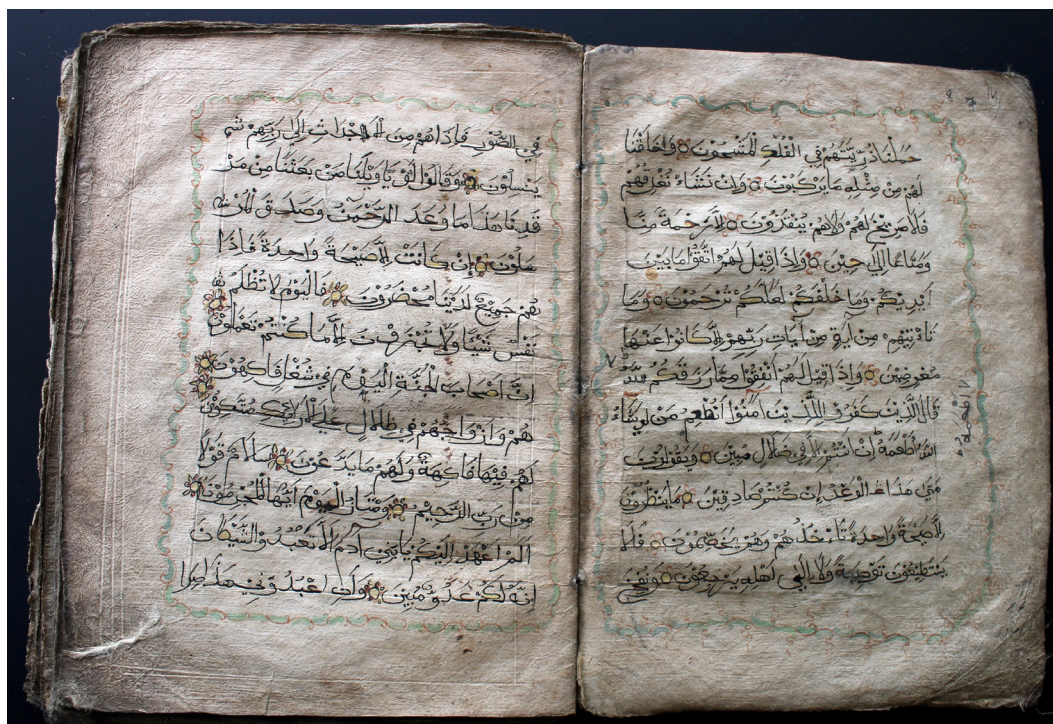 حَمَلْنَا ذُرِّيَّتَهُمْ فِي الْفُلْكِ الْمَشْحُونِ
لَهُمْ مِنْ مِثْلِهِ مَا يَرْكَبُونَ وَاِنْ نَشَاءْ نُغْرِقْهُمْ
فَلَا صَرِيخَ لَهُمْ وَلَاهُمْ يُنْقَذُونَ اِلَّا رَحْمَةً مِنَّا
وَمَتَاعًا اِلَى حِينٍ وَاِذَا قِيلَ لَهُمُ اتَّقُوا مَا بَيْنَ
اَيْدِيكُمْ وَمَا خَلْفَكُمْ لَعَلَّكُمْ تُرْحَمُونَ وَمَا
تَأْتِيهِمْ مِنْ آيَةٍ مِنْ آيَاتِ رَبِّهِمْ اِلَّا كَانُوا عَنْهَا
مُعْرِضِينَ وَاِذَا قِيلَ لَهُمْ اَنْفِقُوا مِمَّا رَزَقَكُمُ اللهُ
قَالَ الَّذِينَ كَفَرُوا لِلَّذِينَ اٰمَنُوا اَنُطْعِمُ مَنْ لَوْ يَشَاءُ
اللهُ اَطْعَمَهُ اِنْ اَنْتُمْ اِلَّا فِي ضَلَالٍ مُبِينٍ وَيَقُولُونَ
مَتَى هٰذَا الْوَعْدُ اِنْ كُنْتُمْ صَادِقِينَ مَا يَنْظُرُونَ
اِلَّا صَيْحَةً وَاحِدَةً تَأْخُذُهُمْ وَهُمْ يَخِصِّمُونَ فَلَا
يَسْتَطِيعُونَ تَوْصِيَةً وَلَا اِلَى اَهْلِهِ يَرْجِعُونَ وَنُفِخَ
فِي الصُّورِ فَاِذَا هُمْ مِنَ الْاَجْدَاثِ اِلَى رَبِّهِمْ
يَنْسِلُونَ يَا وَيْلَنَا مَنْ بَعَثَنَا مِنْ مَرْ
قَدِنَا هٰذَا مَا وَعَدَ الرَّحْمٰنُ وَصَدَقَ
سَلُونَ اِنْ كَانَتْ اِلَّا صَيْحَةً وَاحِدَةً فَاِذَا
هُمْ جَمِيعٌ لَدَيْنَا مُحْضَرُونَ فَالْيَوْمَ لَا تُظْلَمُ
نَفْسٌ شَيْئًا وَلَا تُجْزَوْنَ اِلَّا مَا كُنْتُمْ تَعْمَلُونَ
اِنَّ اَصْحَابَ الْجَنَّةِ الْيَوْمَ فِي شُغُلٍ فَاكِهُونَ
هُمْ وَاَزْوَاجُهُمْ فِي ظِلَالٍ عَلَى الْاَرَائِكِ مُتَّكِئُونَ
لَهُمْ فِيهَا فَاكِهَةٌ وَلَهُمْ مَا يَدَّعُونَ سَلَامٌ قَوْلًا
مِنْ رَبٍّ الرَّحِيمٍ وَامْتَازُوا الْيَوْمَ اَيُّهَا الْمُجْرِمُونَ
اَلَمْ اَعْهَدْ اِلَيْكُمْ يَا بَنِي آدَمَ اَلَّا تَعْبُدُوا الشَّيْطَانَ
اِنَّهُ لَكُمْ عَدُوٌّ مُبِينٌ وَاَنِ اعْبُدُونِي هٰذَا صِرَا